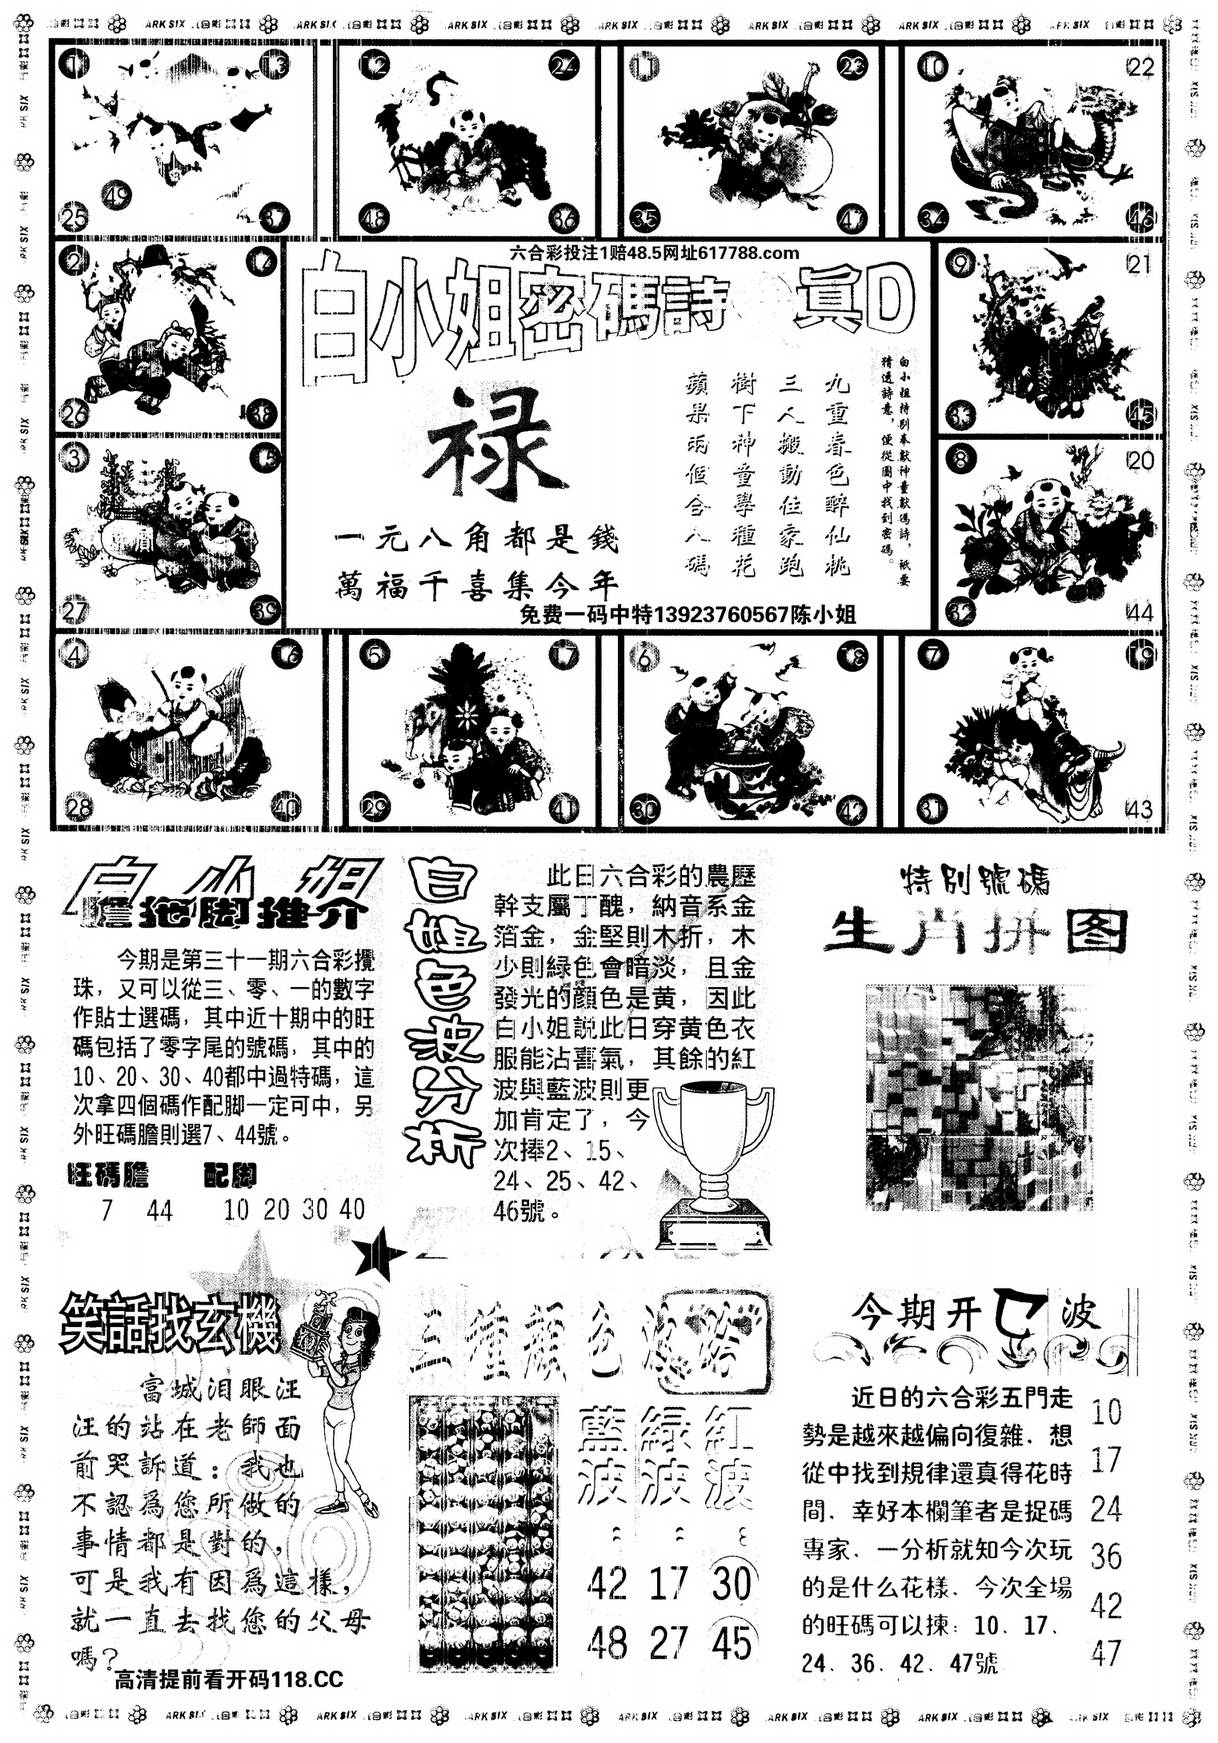 1 13 12 24 11 23 10 22
49
25 37 48 36 35 47 34 46
2 14
26 38
3 15
27 39
六合彩投注1赔48.5网址617788.com
白小姐密碼詩 眞D
禄
一元八角都是錢
萬福千喜集今年
九重春色醉仙桃
三人搬動住家跑
樹下神童學種花
蘋果兩個合八碼
白小姐特別奉獻神童獻碼詩，祇要
猜透詩意，便從圖中找到密碼。
免费一码中特13923760567陈小姐
9 21
33 45
8 20
32 44
4 16 5 17 6 18 7 19
28 40 29 41 30 42 31 43
白小姐
膽拖脚推介
今期是第三十一期六合彩攪
珠，又可以從三、零、一的數字
作貼士選碼，其中近十期中的旺
碼包括了零字尾的號碼，其中的
10、20、30、40都中過特碼，這
次拿四個碼作配脚一定可中，另
外旺碼膽則選7、44號。
旺碼膽 配脚
7 44 10 20 30 40
白姐色波分析
此日六合彩的農歷
幹支屬丁醜，納音系金
箔金，金堅則木折，木
少則綠色會暗淡，且金
發光的顔色是黄，因此
白小姐説此日穿黄色衣
服能沾喜氣，其餘的紅
波與藍波則更
加肯定了，今
次捧2、15、
24、25、42、
46號。
特別號碼
生肖拼图
笑話找玄機
富城泪眼汪
汪的站在老師面
前哭訴道：我也
不認爲您所做的
事情都是對的，
可是我有因爲這樣，
就一直去找您的父母
嗎？
高清提前看开码118.CC
三種顔色
藍波：
42
48
緑波：
17
27
紅波：
30
45
今期开 波
近日的六合彩五門走
勢是越來越偏向復雜．想
從中找到規律還真得花時
間．幸好本欄筆者是捉碼
專家．一分析就知今次玩
的是什么花樣．今次全場
的旺碼可以揀：10．17．
24．36．42．47號
10
17
24
36
42
47